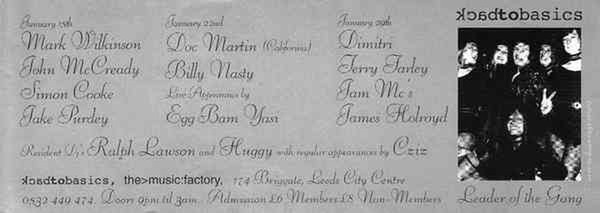 January 15th
Mark Wilkinson
John McCready
Simon Cooke
Jake Purdey
January 22nd
Doc Martin (California)
Billy Nasty
Live Appearance by
Egg Bam Yasi
January 29th
Dimitri
Terry Farley
Jam Mc's
James Holroyd
Resident Dj's Ralph Lawson and Huggy with regular appearances by Cziz
backtobasics, the>music:factory, 174 Briggate, Leeds City Centre
0532 449 474. Doors 9pm til 3am. Admission £6 Members £8 Non-Members
backtobasics
Leader of the Gang